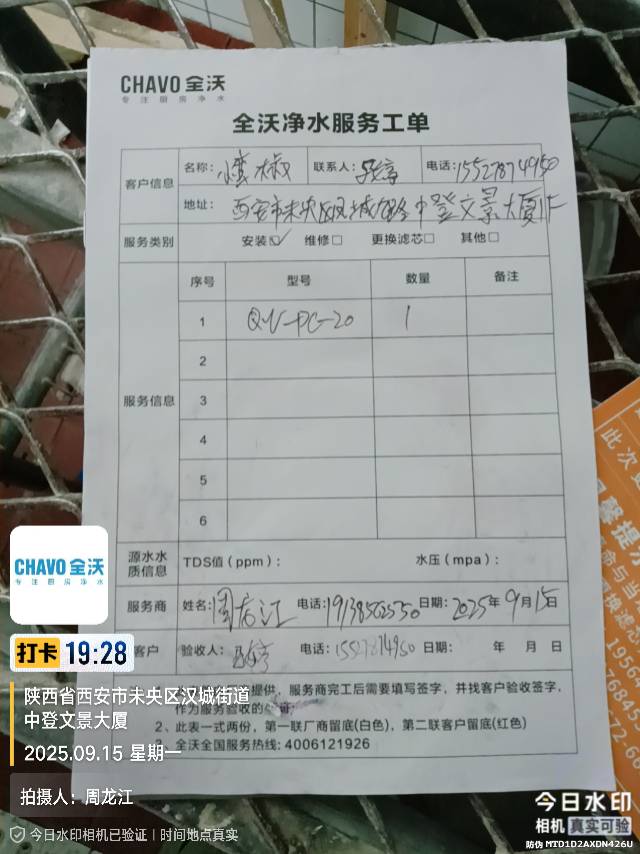 CHAVO 全沃
专 注 厨 房 净 水
全沃净水服务工单
客户信息 名称: 联系人: 电话:15527874950
地址: 西安市未央区汉城街道中登文景大厦1F
服务类别 安装☑ 维修□ 更换滤芯□ 其他□
序号 型号 数量 备注
1 QW-PC-20 1
2
服务信息 3
4
5
6
源水水质信息 TDS值(ppm): 水压(mpa):
服务商 姓名:周龙江 电话:19138502550 日期:2025年9月15日
客户 验收人: 电话:15527874950 日期: 年 月 日
提供,服务商完工后需要填写签字,并找客户验收签字,
作为服务验收的凭证。
2、此表一式两份,第一联厂商留底(白色),第二联客户留底(红色)
3、全沃全国服务热线: 4006121926
CHAVO 全沃
专 注 厨 房 净 水
打卡 19:28
陕西省西安市未央区汉城街道
中登文景大厦
2025.09.15 星期一
拍摄人: 周龙江
今日水印相机已验证 | 时间地点真实
今日水印
相机 真实可验
防伪 MTD1D2AXDN426U
此次